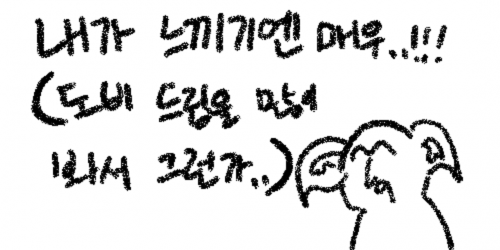 내가 느끼기엔 매우..!!!
(도비 드림을 많이
봐서 그런가..)